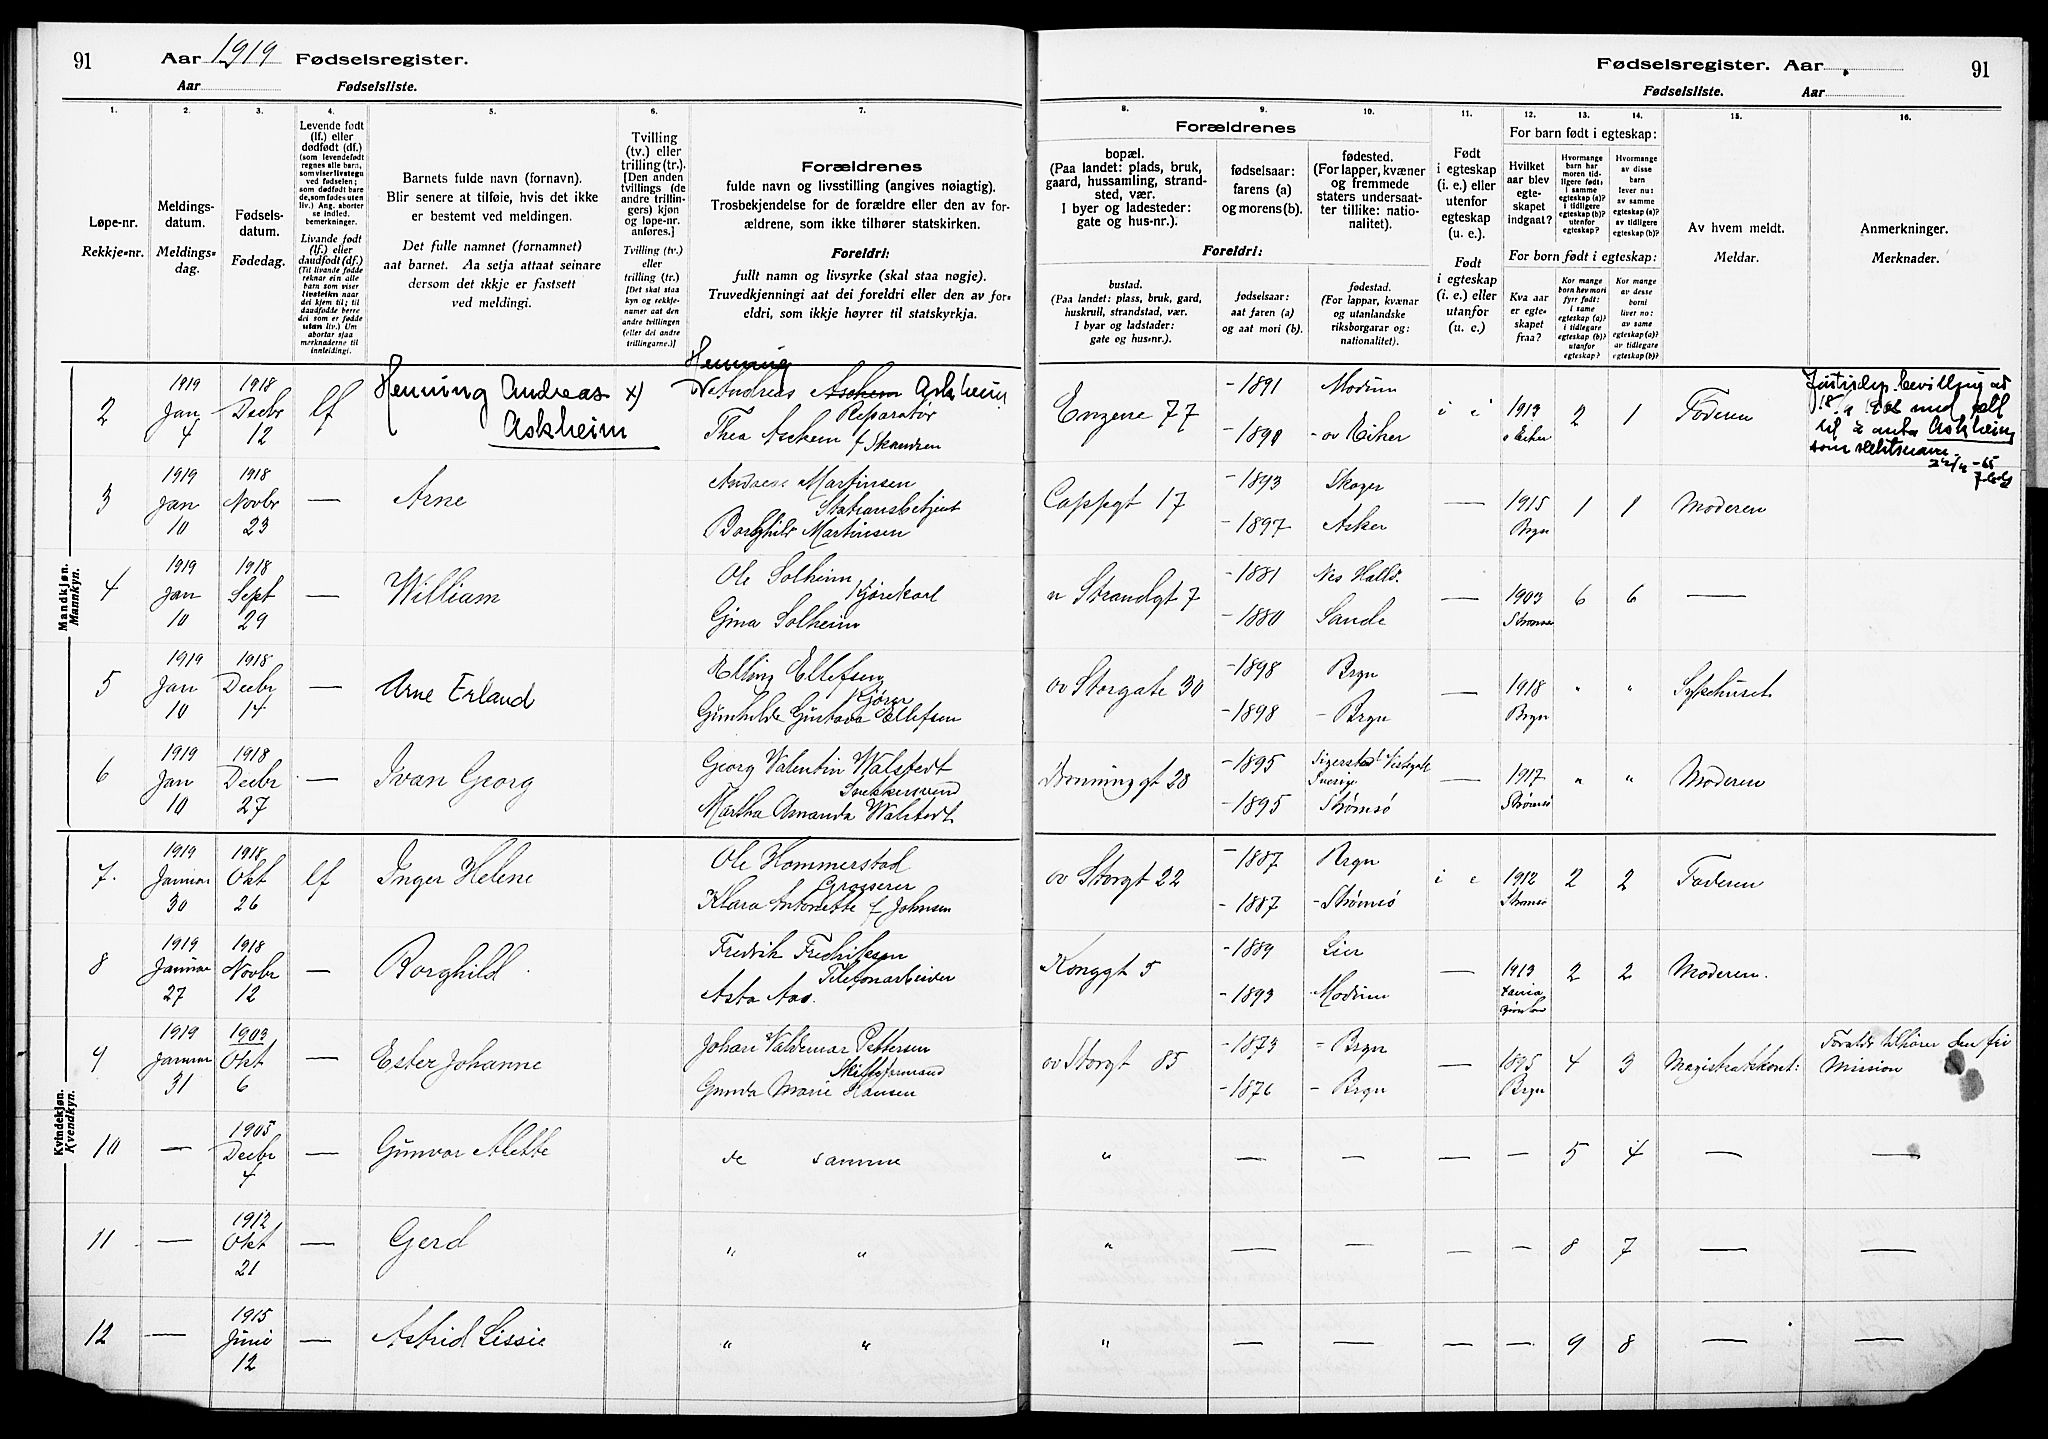 91
Aar 1919 Fødselsregister.
Aar Fødselsliste.
Fødselsregister. Aar
91
Fødselsliste. Aar
1. 2. 3. 4. 5. 6. 7.
8. 9. 10. 11. 12. 13. 14. 15. 16.
Løpe-nr.
Rekkje-nr.
Meldings-
datum.
Meldings-
dag.
Fødsels-
datum.
Fødedag.
Levende født
(lf.) eller
dødfødt (df.)
(som levendefødt
regnes alle barn,
som viser livstegn
ved fødselen;
som dødfødt bare
de, som fødes uten
liv.) Ang. aborter
se indled.
bemerkninger.
Livande født
(lf.) eller
daudfødt (df.)
(Til livande fødde
reknar ein alle
barn som viser
livsteikn naar
dei kjem til; til
daudfødde berre
dei som er fødde
utan liv.) Um
abortar sjaa
merknaderne til
innleidingi.
Barnets fulde navn (fornavn).
Blir senere at tilføie, hvis det ikke
er bestemt ved meldingen.
Det fulle namnet (fornamnet)
aat barnet. Aa setja attaat seinare
dersom det ikkje er fastsett
ved meldingi.
Tvilling
(tv.) eller
trilling (tr.)
[Den anden
tvillings (de
andre trillin-
gers) kjøn
og løpe-nr.
anføres.]
Tvilling (tv.)
eller
trilling (tr.)
[Det skal staa
kyn og rekkje-
numer aat den
andre tvillingen
(eller dei andre
trillingarne.)]
Forældrenes
fulde navn og livsstilling (angives nøiagtig).
Trosbekjendelse for de forældre eller den av for-
ældrene, som ikke tilhører statskirken.
Foreldri:
fullt namn og livsyrke (skal staa nøgje).
Truvedkjenningi aat dei foreldri eller den av for-
eldri, som ikkje høyrer til statskyrkja.
Forældrenes
bopæl.
(Paa landet: plads, bruk,
gaard, hussamling, strand-
sted, vær.
I byer og ladesteder:
gate og hus-nr.).
fødselsaar:
farens (a)
og morens (b).
fødested.
(For lapper, kvæner
og fremmede
staters undersaat-
ter tillike: natio-
nalitet).
Foreldri:
bustad.
(Paa landet: plass, bruk, gard,
huskrull, strandstad, vær.
I byar og ladstader:
gate og hus-nr.).
fødselsaar:
aat faren (a)
og aat mori (b).
fødestad.
(For lappar, kvænar
og utanlandske
riksborgarar og:
nationalitet).
Født
i egteskap
(i. e.) eller
utenfor
egteskap
(u. e.).
Født
i egteskap
(i. e.) eller
utanfor
(u. e.)
For barn født i egteskap:
Hvilket
aar blev
egte-
skapet
indgaat?
Hvormange
barn har
moren tid-
ligere født:
i samme
egteskap (a)?
i tidligere
egteskap (b)?
utenfor
egteskap?
Hvormange
av disse
barn
lever nu:
av samme
egteskap (a)?
av tidligere
egteskap (b)?
For born født i egteskap:
Kva aar
er egte-
skapet
fraa?
Kor mange
born hev mori
fyrr født:
i same
egteskap (a)?
i tidlegare
egteskap (b)?
utanfor
egteskap?
Kor mange
av desse
borni
liver no:
av same
egteskap (a)?
av tidlegare
egteskap (b)?
Av hvem meldt.
Meldar.
Anmerkninger.
Merknader.
Mandkjøn.
Mannkyn.
2 1919 Jan 4 1918 Decbr 12 lf Henning Andreas Askheim x)
Henning Andreas Aschem Askheim
Reparatør
Thea Aschem f Skandsen
Engene 77 -1891 Modum -1890 -øv Eiker i e 1913 ø Eiker 2 1 Faderen
bevilling
med
til å anta Askheim
som slektsnavn.
3 1919 Jan 10 1918 Novbr 23 — Arne
Andreas Martinsen
Stationsbetjent
Borghild Martinsen
Cappegt 17 -1893 Skoger -1897 Asker — 1915 Brgn 1 1 Moderen
4 1919 Jan 10 1918 Sept 29 — William
Ole Solheim
Kjørekarl
Gina Solheim
n Strandgt 7 -1881 Nes Halld. -1880 Sande — 1903 Strømsø 6 6 —
5 1919 Jan 10 1918 Decbr 14 — Arne Erland
Elling Ellefsen
Kjører
Gunhilde Gustava Ellefsen
øv Storgate 30 -1898 Brgn -1898 - Brgn — 1918 Brgn " " Sykehuset
6 1919 Jan 10 1918 Decbr 27 — Ivan Georg
Georg Valentin Walstedt
Snekkersvend
Martha Amanda Walstedt
Dronninggt 28 -1895 Sverige -1895 Strømsø — 1917 Strømsø " " Moderen
Kvindekjøn.
Kvendkyn.
7. 1919 Januar 30 1918 Okt 26 lf Inger Helene
Ole Hommerstad
Grosserer
Klara Antonette f Johnsen
øv Storgt 22 -1887 Brgn -1887 -Strømsø i e 1912 Strømsø 2 2 Faderen
8 1919 Januar 27 1918 Novbr 12 — Borghild
Fredrik Fredriksen
Telefonarbeider
Asta Aas.
Konggt 5 -1889 Lier -1893 Modum — 1913 2 2 Moderen.
9 1919 Januar 31 1903 Okt 6 — Ester Johanne
Johan Valdemar Pettersen
Skibstømmermand
Gunda Marie Hansen
øv Storgt 85 -1873 - Brgn -1876 - Brgn — 1895 Brgn 4 3 Magistratskont: Foreldr tilhører den fri
Mission
10 — 1905 Decbr 4 — Gunvor Alette de samme " — — — — 5 4 — —
11 — 1912 Okt 21 — Gerd " " " — — — — 8 7 — —
12 — 1915 Juni 12 — Astrid Lissie " " " — — — — 9 8 — —